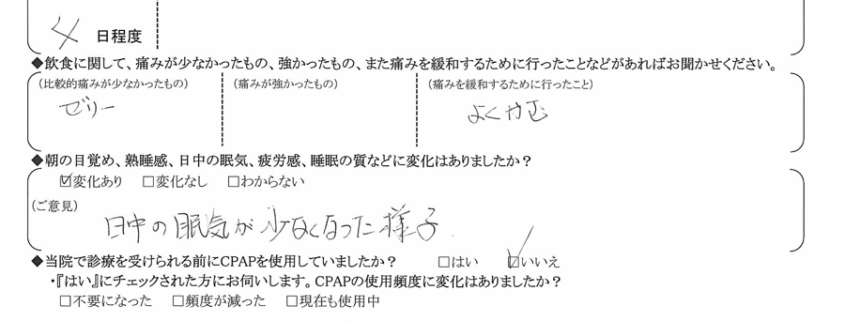 4 日程度
◆飲食に関して、痛みが少なかったもの、強かったもの、また痛みを緩和するために行ったことなどがあればお聞かせください。
（比較的痛みが少なかったもの） （痛みが強かったもの） （痛みを緩和するために行ったこと）
ゼリー よくかむ
◆朝の目覚め、熟睡感、日中の眠気、疲労感、睡眠の質などに変化はありましたか？
☑変化あり □変化なし □わからない
（ご意見）
日中の眠気が少なくなった様子
◆当院で診療を受けられる前にCPAPを使用していましたか？ □はい ☑いいえ
・『はい』にチェックされた方にお伺いします。CPAPの使用頻度に変化はありましたか？
□不要になった □頻度が減った □現在も使用中